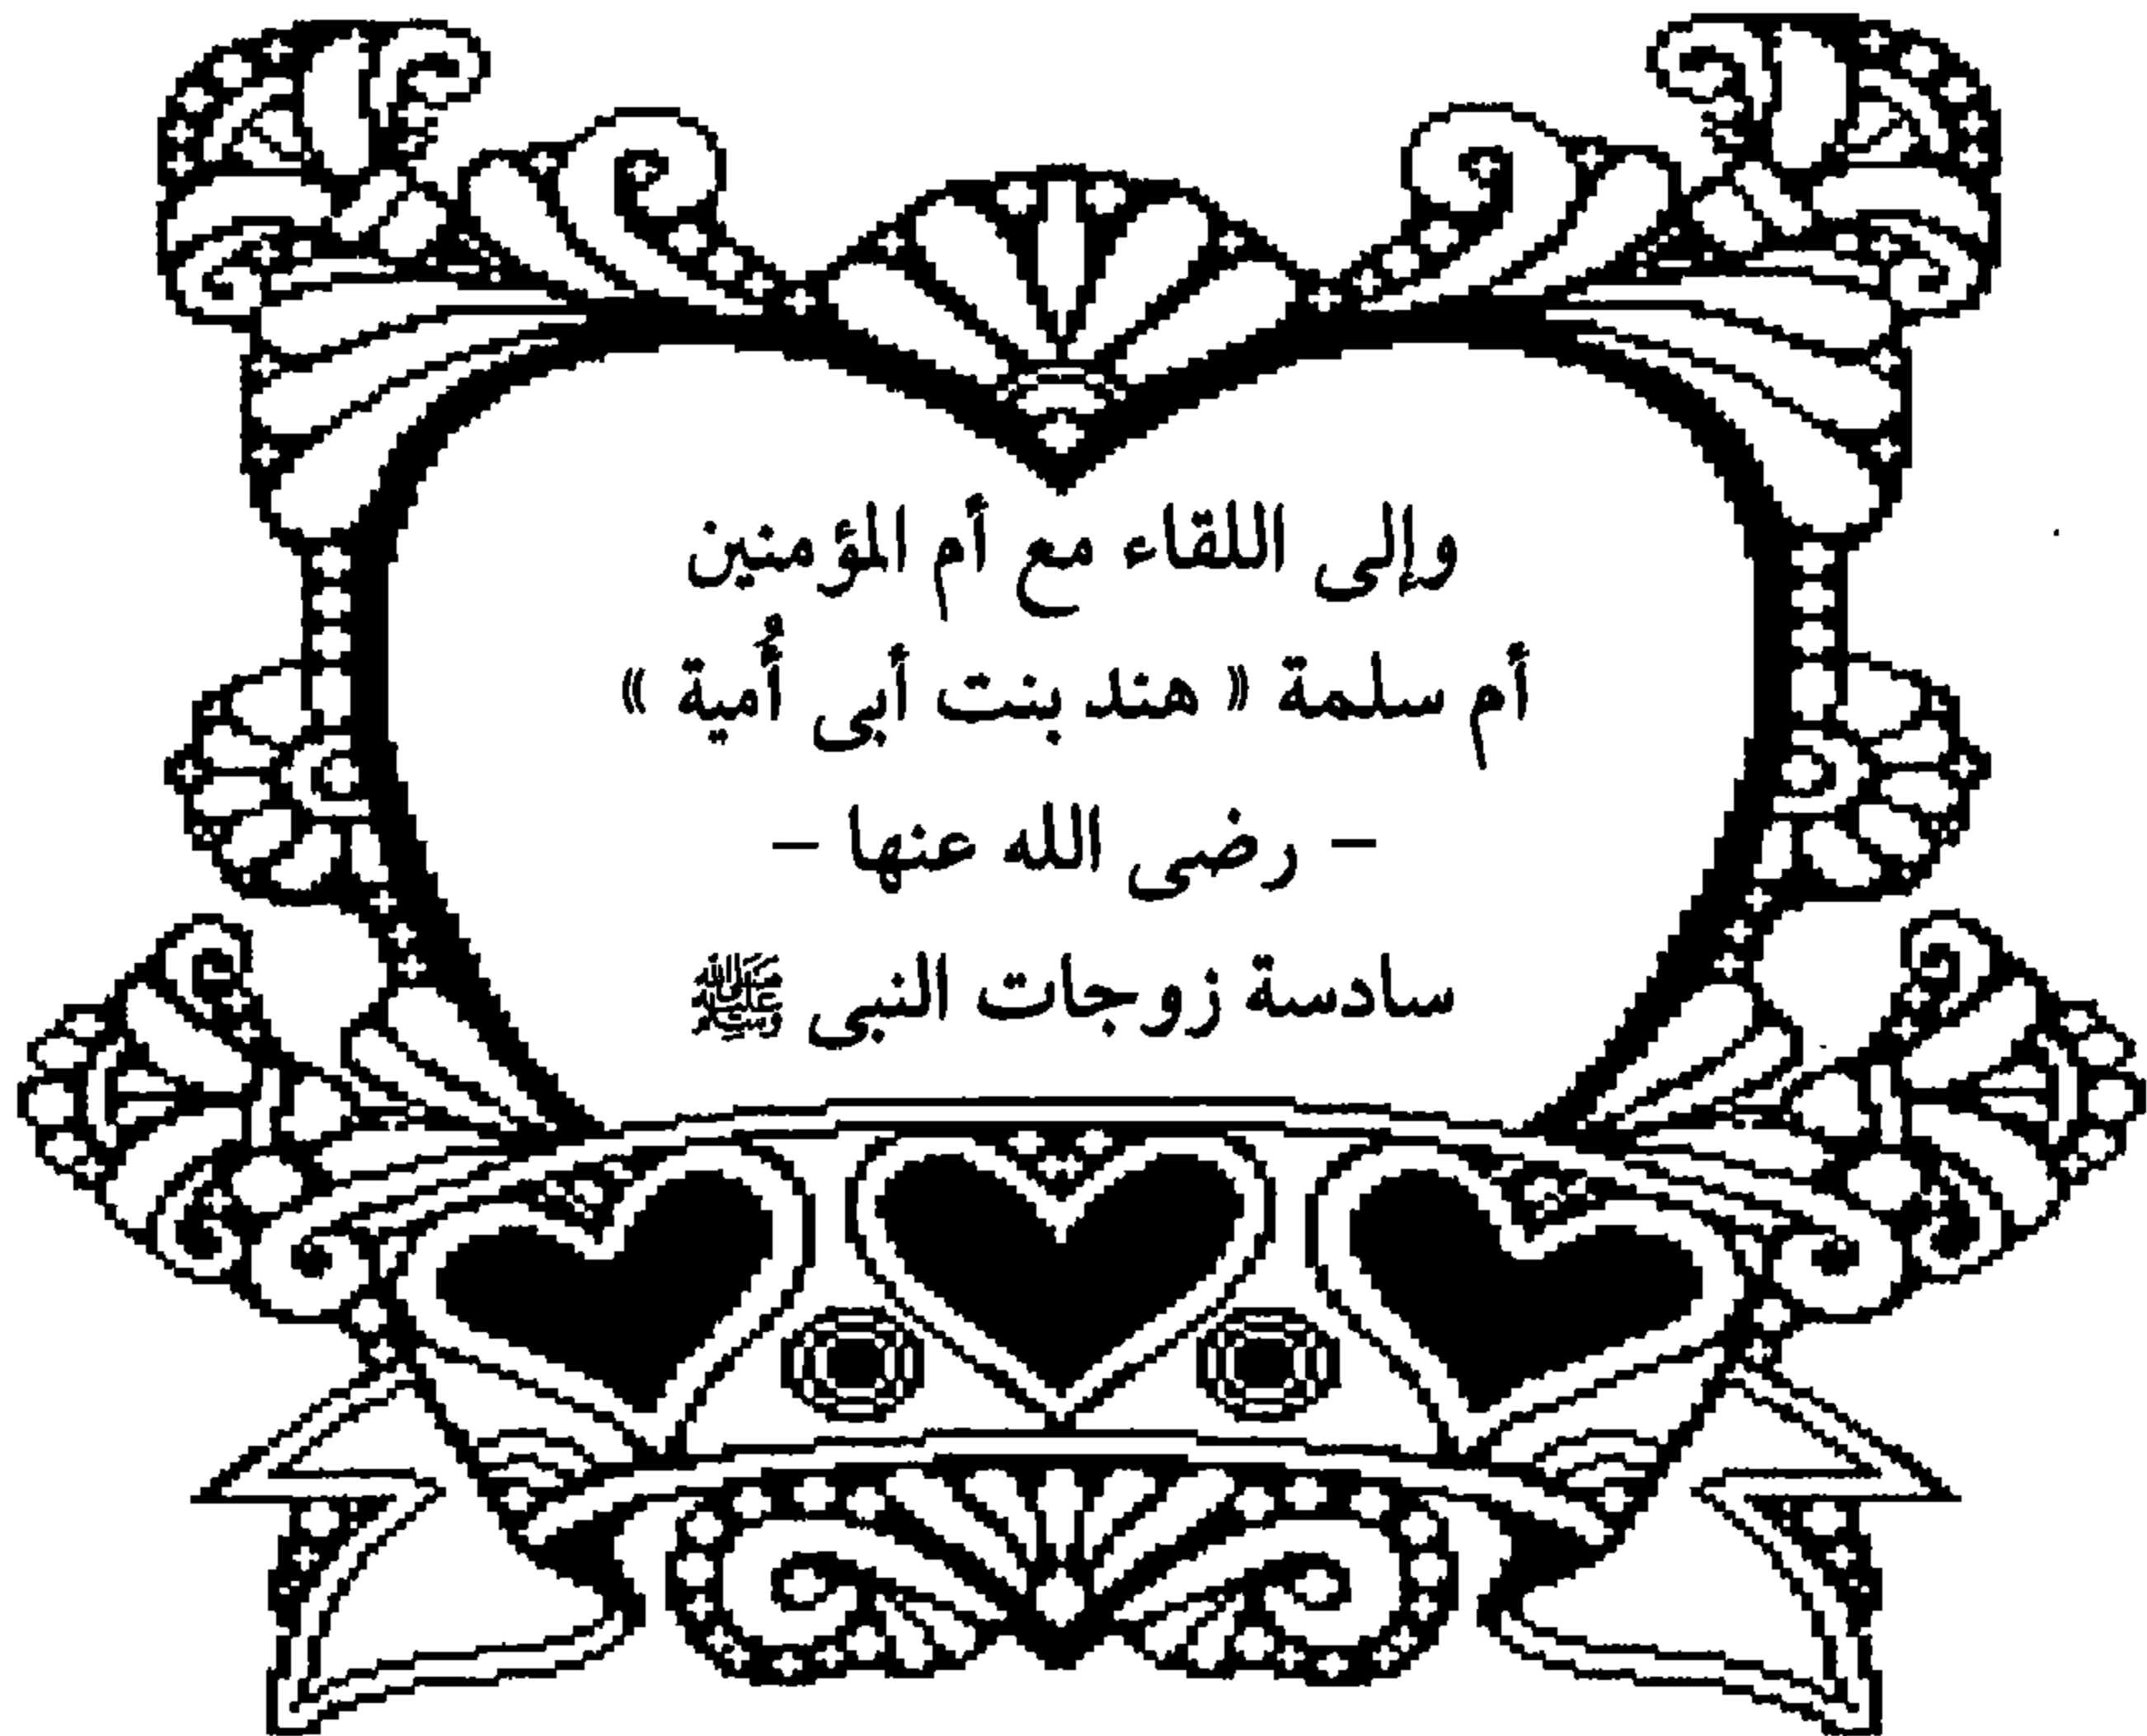 وإلى اللقاء مع أم المؤمنين
أم سلمة « هند بنت أبى أُمية »
— رضى الله عنها —
سادسة زوجات النبى ﷺ